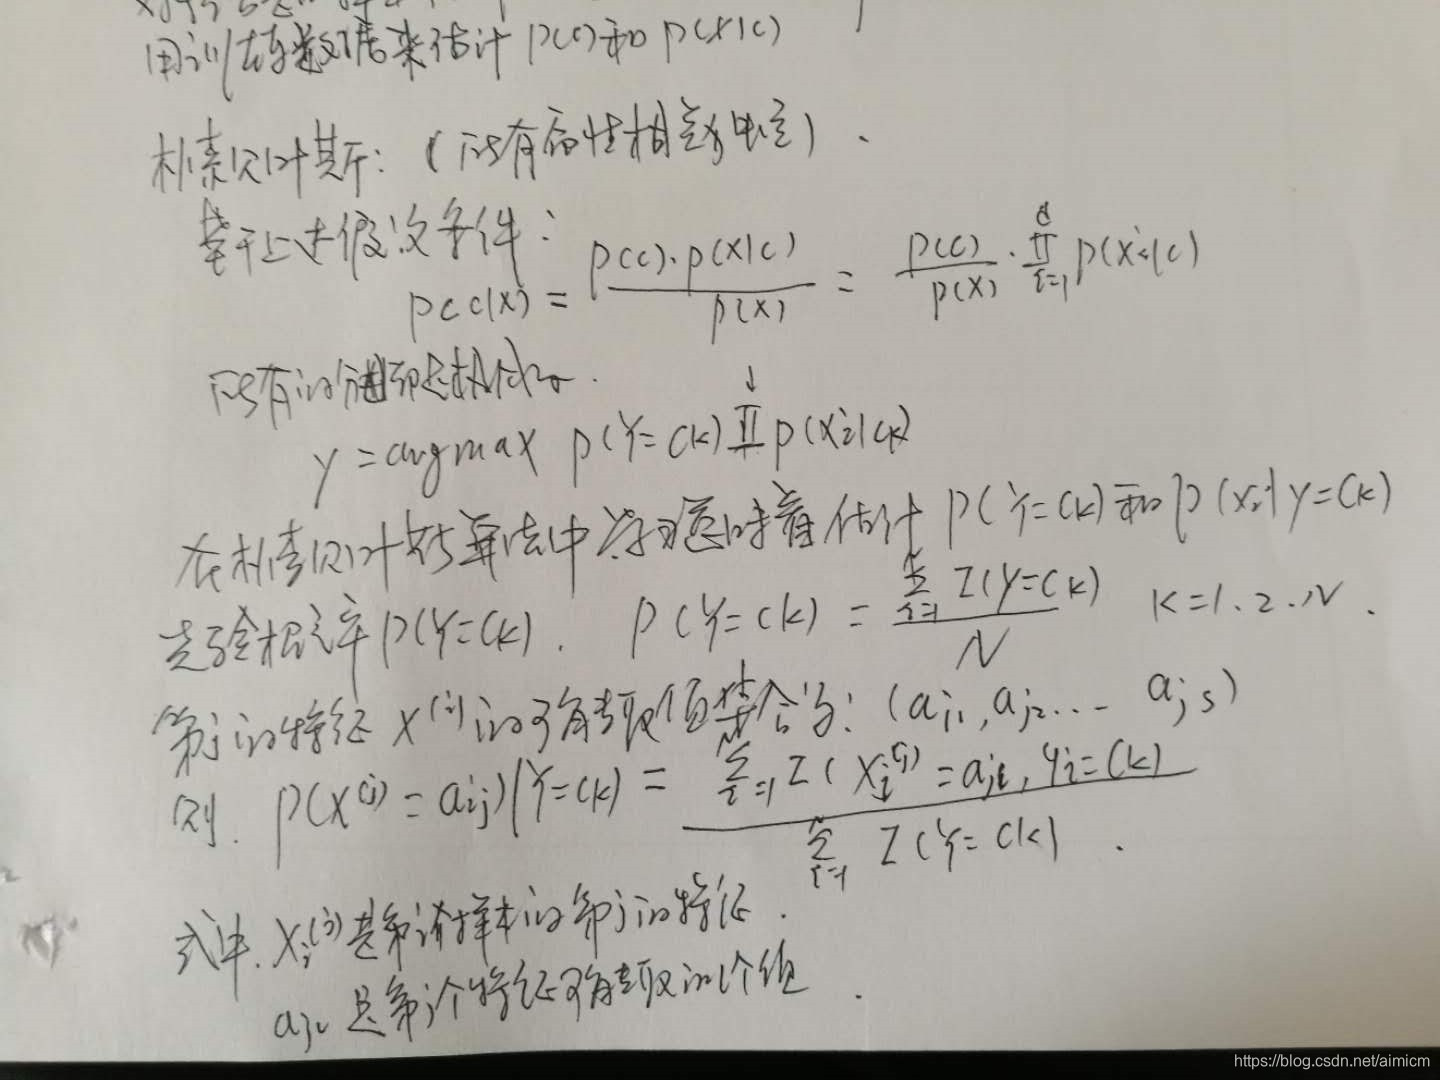 用训练数据来估计 P(C)和 P(X|C)
朴素贝叶斯：（所有属性相互独立）.
基于上述假设条件：
P(C|X) = P(C)·P(X|C) / P(X) = P(C) / P(X) · ∏_{i=1}^{d} P(Xi|C)
所有的
y = argmax P(Y=Ck) ∏ P(Xi|Ck)
在朴素贝叶斯算法中学习意味着估计 P(Y=Ck) 和 P(Xi|Y=Ck)
先验概率 P(Y=Ck). P(Y=Ck) = ∑_{i=1}^{N} I(Y=Ck) / N K=1.2..N.
第j的特征 X^(j) 的可能取值集合为：(aj1, aj2... ajs)
则. P(X^(j) = aij)|Y=Ck) = ∑_{i=1}^{N} I(Xi^(j) = ajl, yi=Ck) / ∑_{i=1}^{N} I(Y=Ck) .
式中. Xi^(j)是第i样本的第j的特征.
ajl 是第j个特征可能取的个值.
https://blog.csdn.net/aimicm